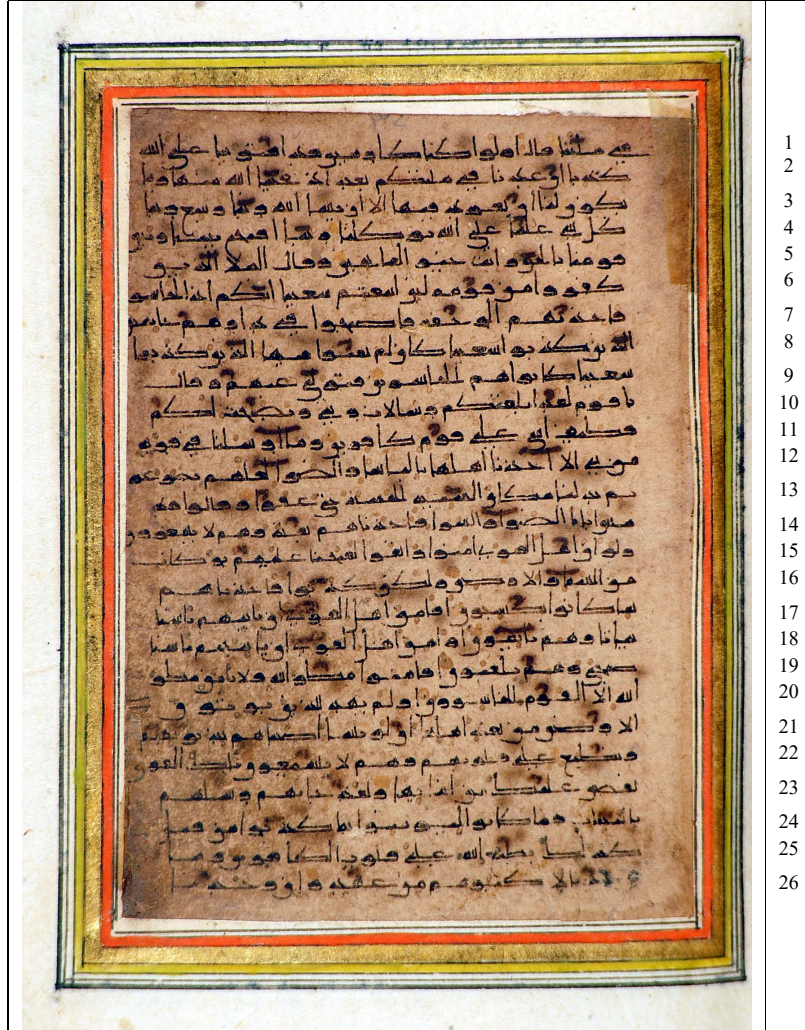 في ملتنا قال اولو كنا كارهين قد افترينا على الله 1
كذبا ان عدنا في ملتكم بعد اذ نجينا الله منها وما 2
يكون لنا ان نعود فيها الا ان يشا الله ربنا وسع ربنا 3
كل شي علما على الله توكلنا ربنا افتح بيننا وبين 4
قومنا بالحق وانت خير الفاتحين وقال الملا الذين 5
كفروا من قومه لين اتبعتم شعيبا انكم اذا لخاسرون 6
فاخذتهم الرجفة فاصبحوا في دارهم جاثمين 7
الذين كذبوا شعيبا كان لم يغنوا فيها الذين كذبوا 8
شعيبا كانوا هم الخاسرين فتولى عنهم وقال 9
يا قوم لقد ابلغتكم رسالات ربي ونصحت لكم 10
فكيف اسى على قوم كافرين وما ارسلنا في قرية 11
من نبي الا اخذنا اهلها بالباسا والضرا لعلهم يضرعون 12
ثم بدلنا مكان السيئة الحسنة حتى عفوا وقالوا قد 13
مس ابانا الضرا والسرا فاخذناهم بغتة وهم لا يشعرون 14
ولو ان اهل القرى امنوا واتقوا لفتحنا عليهم بركات 15
من السما والارض ولكن كذبوا فاخذناهم 16
بما كانوا يكسبون افامن اهل القرى ان ياتيهم باسنا 17
بياتا وهم نايمون اوامن اهل القرى ان ياتيهم باسنا 18
ضحى وهم يلعبون افامنوا مكر الله فلا يامن مكر 19
الله الا القوم الخاسرون اولم يهد للذين يرثون 20
الارض من بعد اهلها ان لو نشا اصبناهم بذنوبهم 21
ونطبع على قلوبهم فهم لا يسمعون تلك القرى 22
نقص عليك من انبايها ولقد جاتهم رسلهم 23
بالبينات فما كانوا ليومنوا بما كذبوا من قبل 24
كذلك يطبع الله على قلوب الكافرين وما 25
وجدنا لاكثرهم من عهد وان وجدنا 26